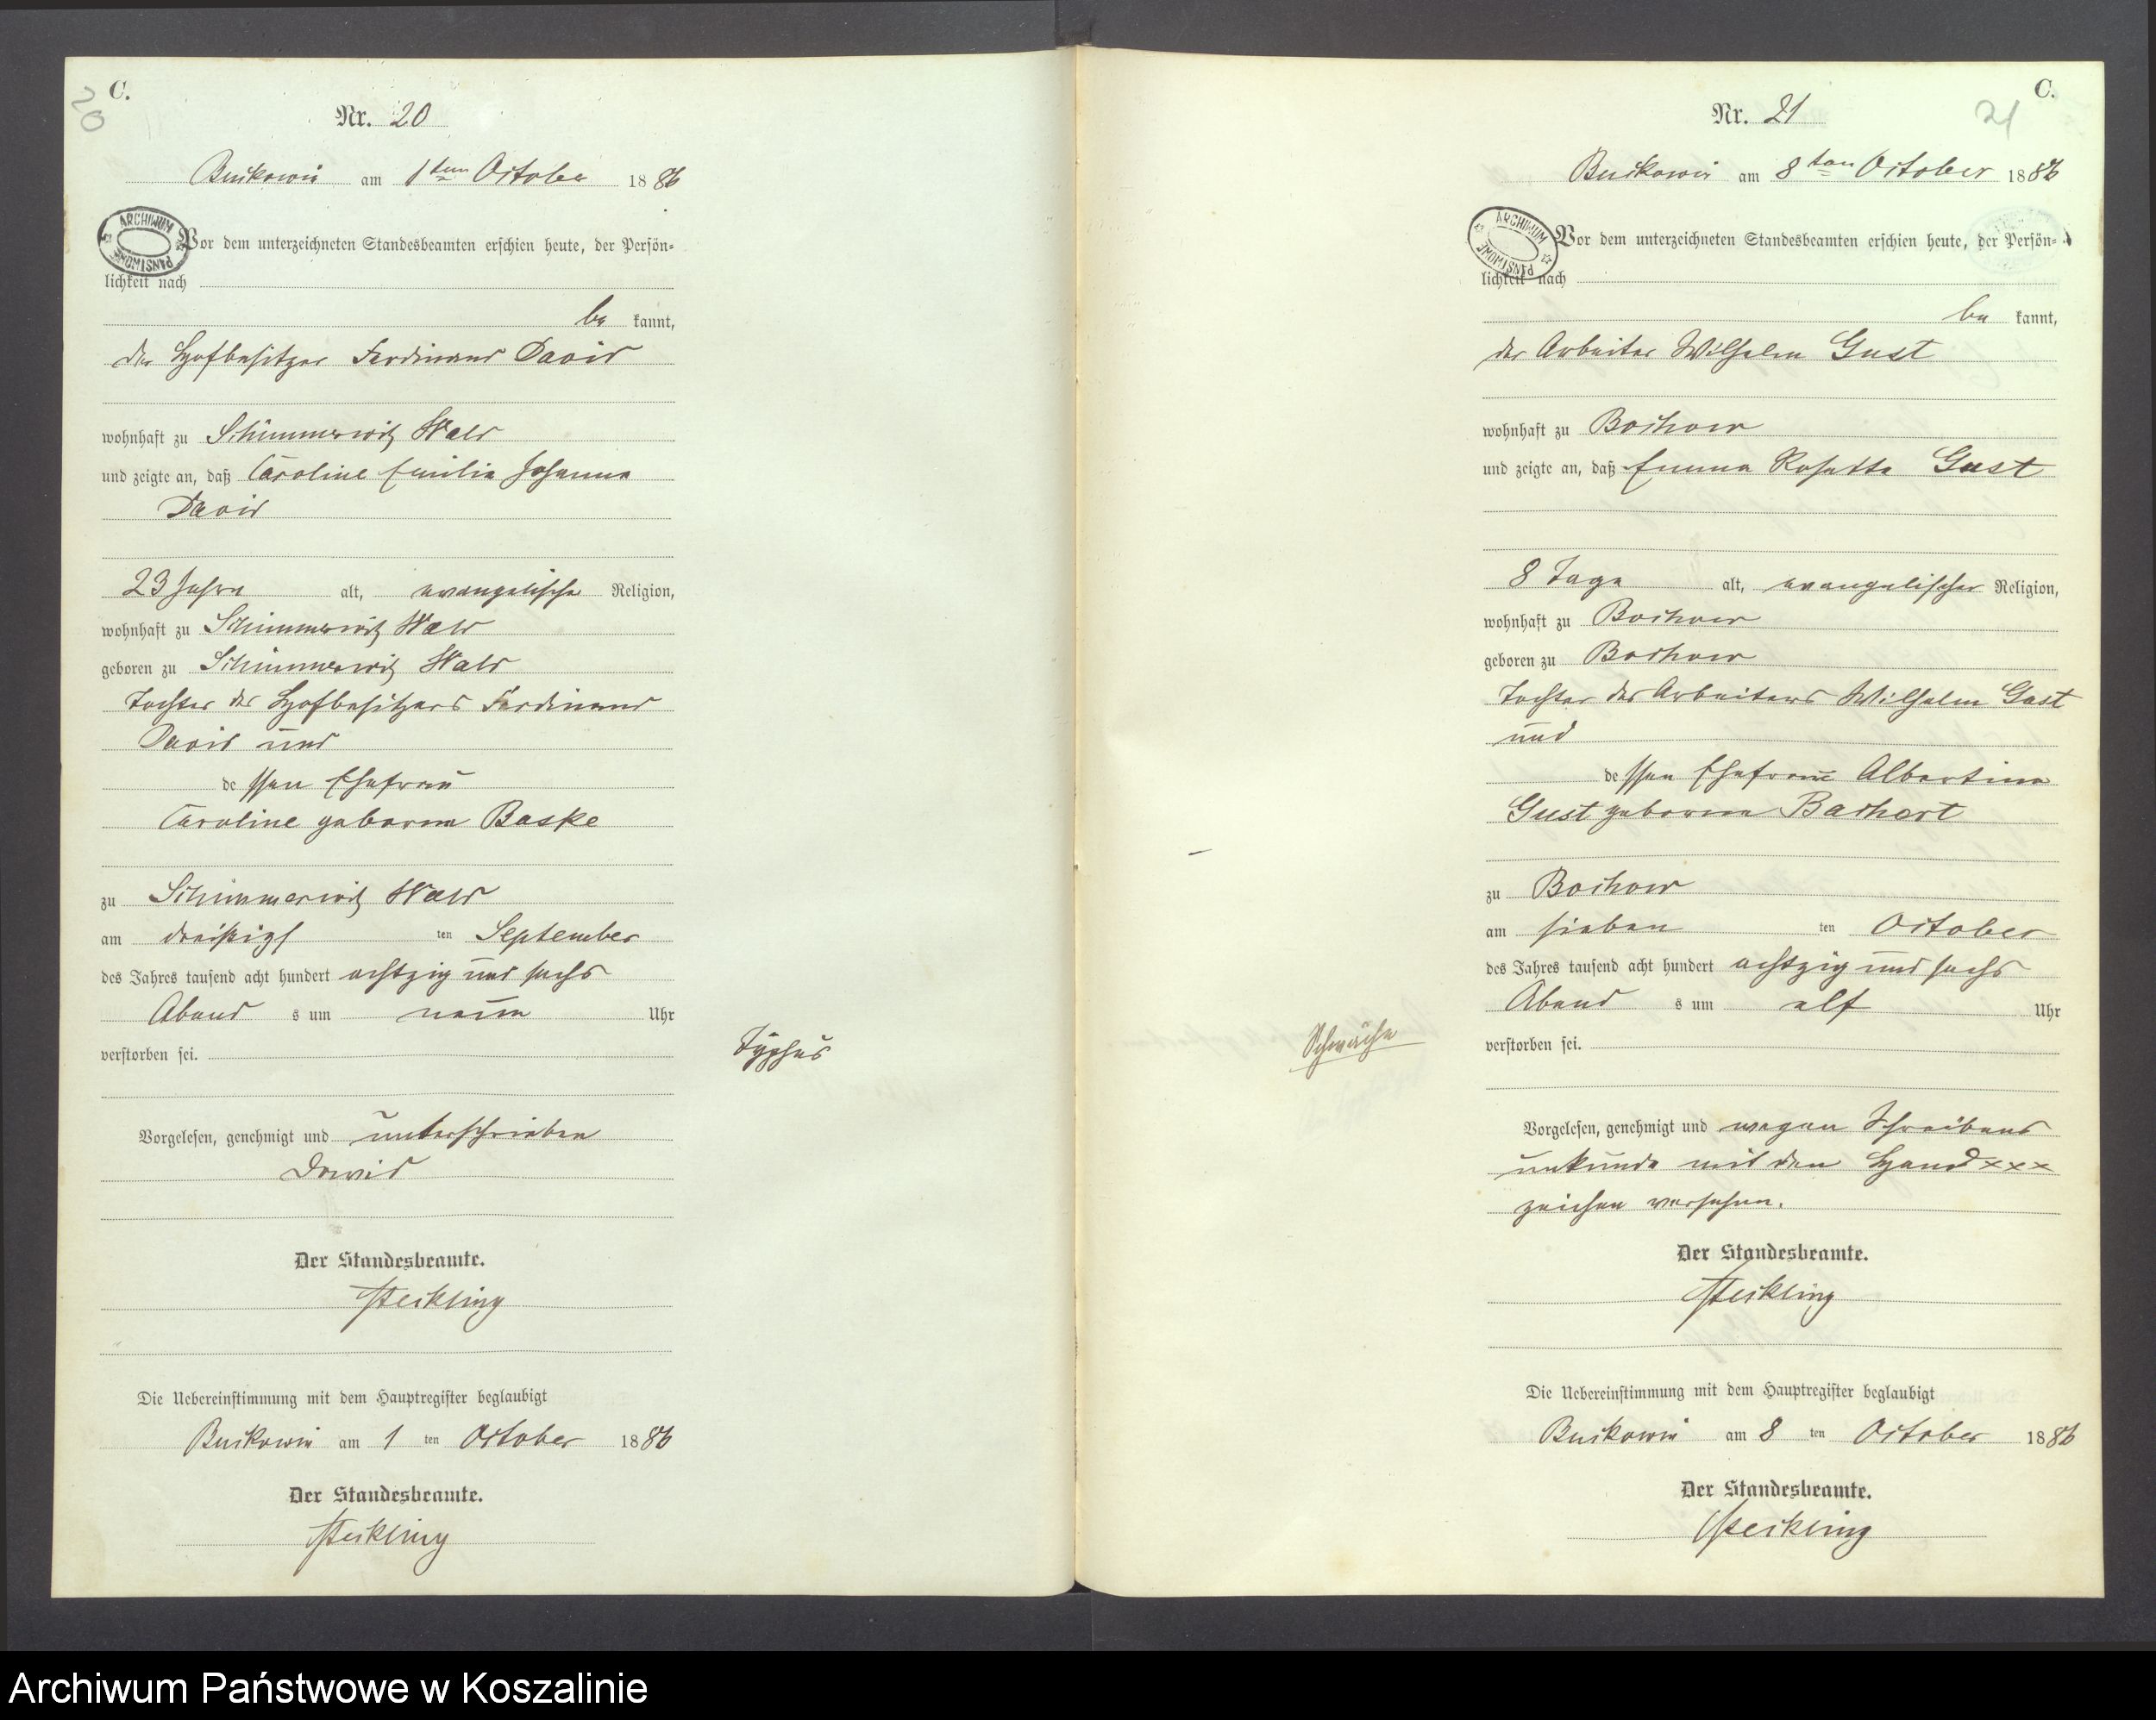 C.
20
Nr. 20
Buckowin am 1ten October 1886
ARCHIWUM PAŃSTWOWE
Vor dem unterzeichneten Standesbeamten erschien heute, der Persön=
lichkeit nach
be kannt,
der Hofbesitzer Ferdinand David
wohnhaft zu Schimmerwitz Wald
und zeigte an, daß Caroline Emilie Johanna
David
23 Jahre alt, evangelische Religion,
wohnhaft zu Schimmerwitz Wald
geboren zu Schimmerwitz Wald
Tochter des Hofbesitzers Ferdinand
David und
de ssen Ehefrau
Caroline geborne Baske
zu Schimmerwitz Wald
am dreißigs ten September
des Jahres tausend acht hundert achtzig und sechs
Abend s um neun Uhr
verstorben sei.
Typhus
Vorgelesen, genehmigt und unterschrieben
David
Der Standesbeamte.
Steckling
Die Uebereinstimmung mit dem Hauptregister beglaubigt
Buckowin am 1 ten October 1886
Der Standesbeamte.
Steckling
C.
21
Nr. 21
Buckowin am 8ten October 1886
ARCHIWUM PAŃSTWOWE
Vor dem unterzeichneten Standesbeamten erschien heute, der Persön=
lichkeit nach
be kannt,
der Arbeiter Wilhelm Gust
wohnhaft zu Bochow
und zeigte an, daß Emma Rosette Gust
8 Tage alt, evangelischer Religion,
wohnhaft zu Bochow
geboren zu Bochow
Tochter des Arbeiters Wilhelm Gust
und
de ssen Ehefrau Albertine
Gust geborne Bachert
zu Bochow
am sieben ten October
des Jahres tausend acht hundert achtzig und sechs
Abend s um elf Uhr
verstorben sei.
Schwäche
Vorgelesen, genehmigt und wegen Schreibens
unkunde mit den Hand xxx
zeichen versehen.
Der Standesbeamte.
Steckling
Die Uebereinstimmung mit dem Hauptregister beglaubigt
Buckowin am 8 ten October 1886
Der Standesbeamte.
Steckling
Archiwum Państwowe w Koszalinie